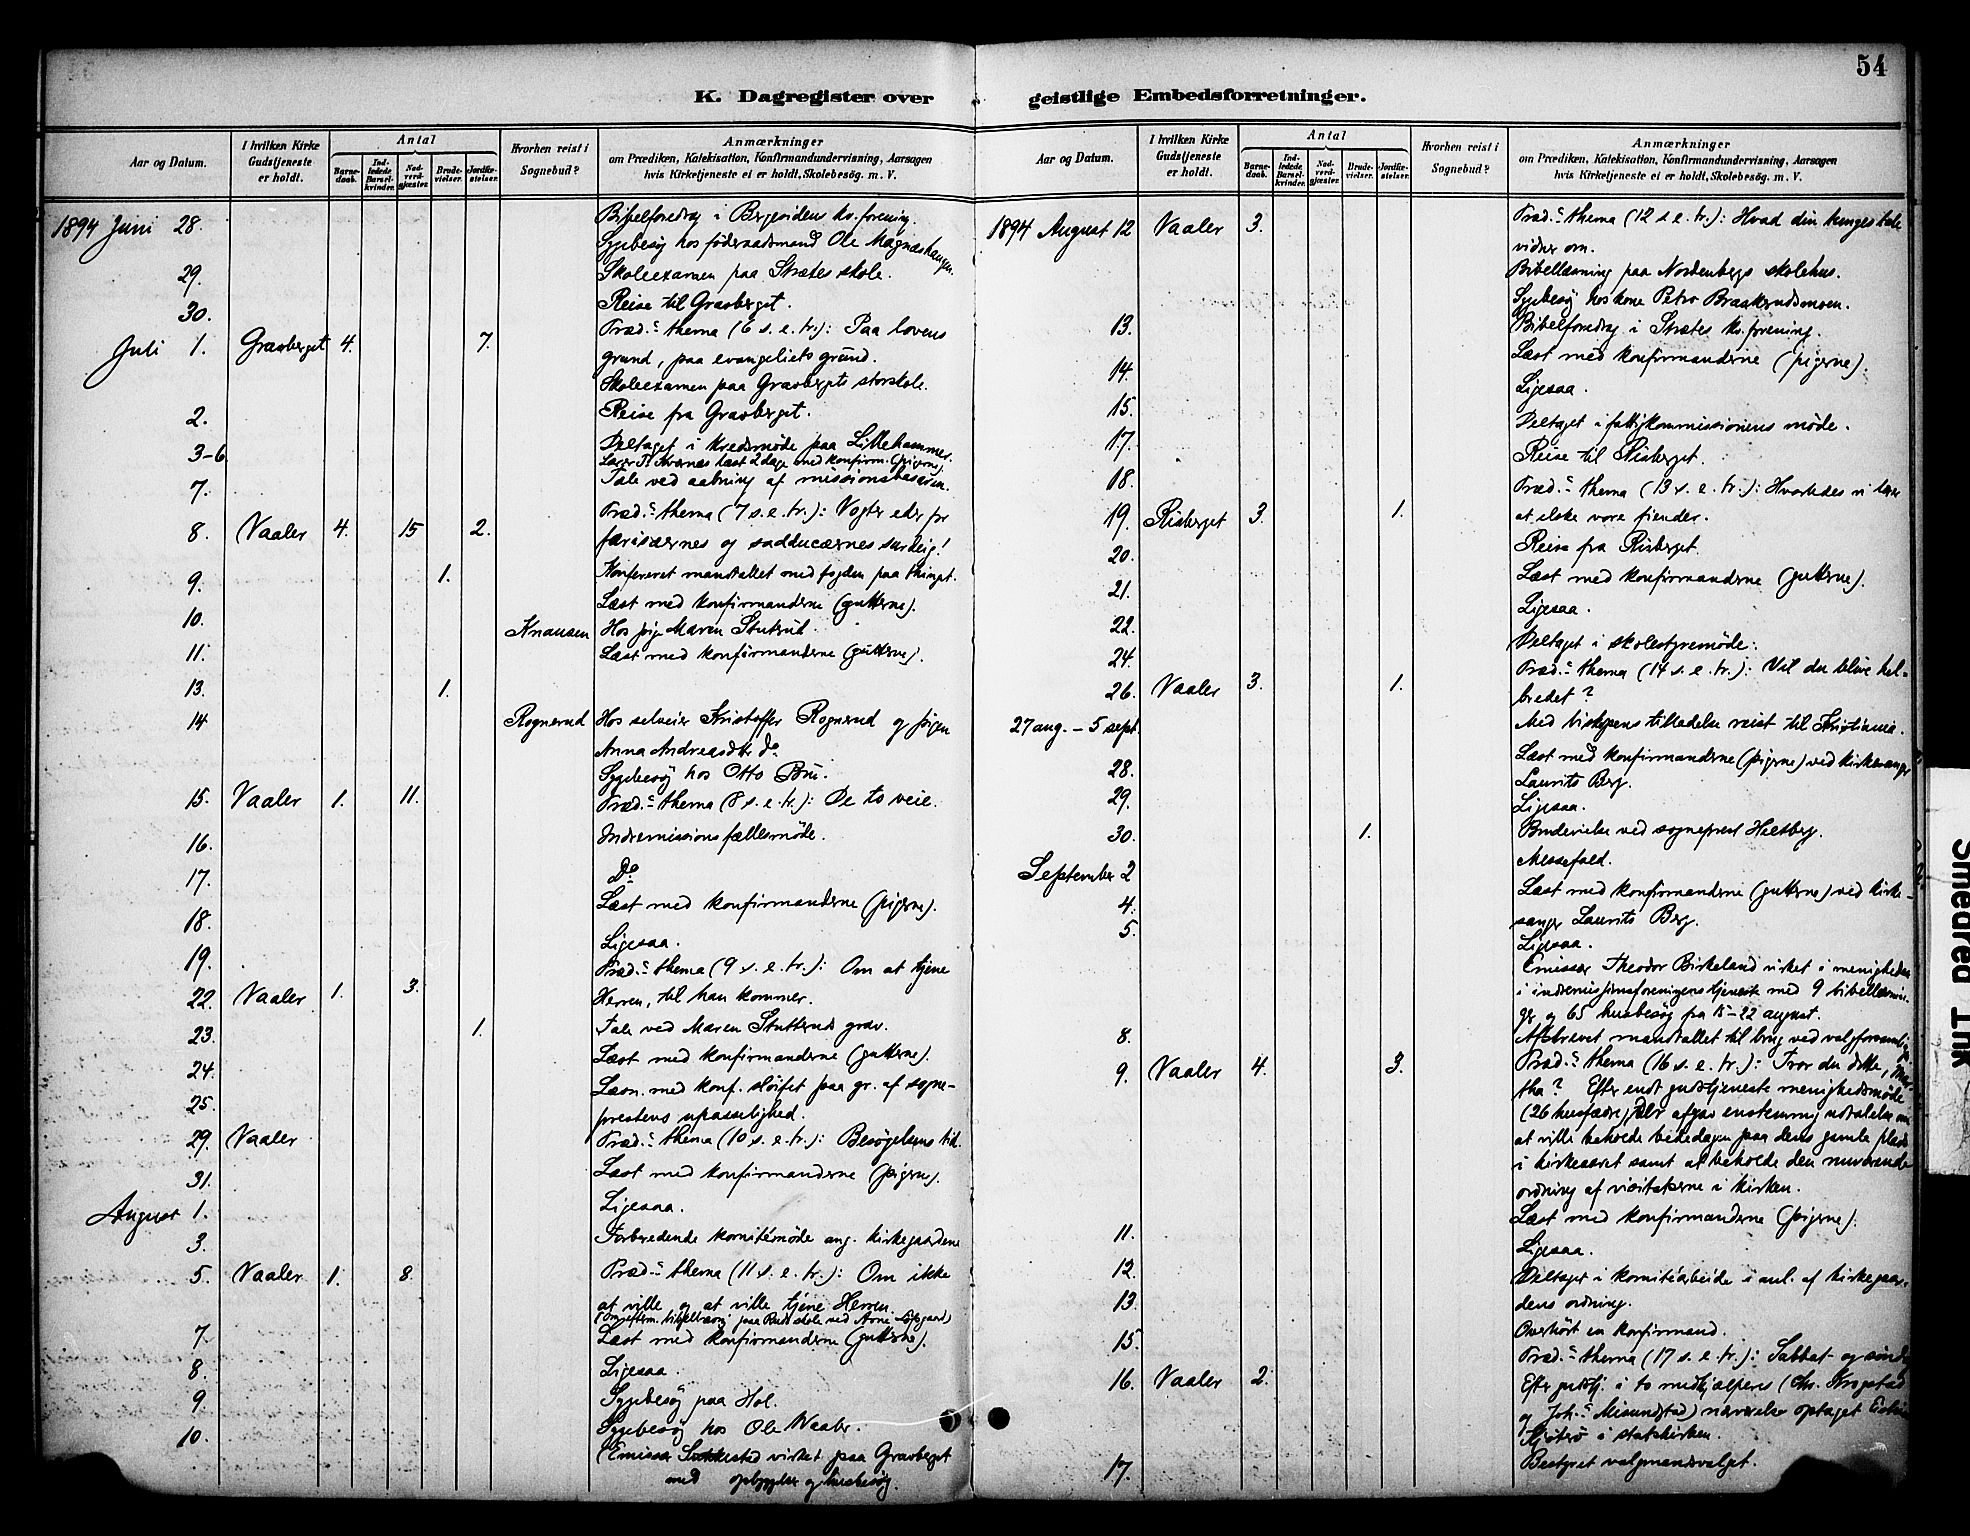 54
K. Dagregister over geistlige Embedsforretninger.
Aar og Datum.
I hvilken Kirke Gudstjeneste er holdt.
Antal
Barnedaab.
Indledede Barselkvinder.
Nadverdgjæster.
Brudevielser.
Jordfæstelser.
Hvorhen reist i Sognebud?
Anmærkninger
om Prædiken, Katekisation, Konfirmandundervisning, Aarsagen
hvis Kirketjeneste ei er holdt, Skolebesøg. m. V.
1894 Juni 28. Bibelforedrag i Bergesidens kv.forening.
Sygebesøg hos føderaadsmand Ole Magnæshaugen.
29. Skoleexamen paa Strætes skole.
30. Reise til Gravberget.
Juli 1. Gravberget 4. 7. Præd.s thema (6 s. e. tr.): Paa lovens
grund, paa evangeliets grund.
Skoleexamen paa Gravbergets storskole.
2. Reise fra Gravberget.
3-6 Deltaget i kredsmøde paa Lillehammer.
læst 2 dage med konfirm. (pigerne).
7. Tale ved aabning af missionsbasaren.
8. Vaaler 4. 15 2. Præd.s thema (7 s. e. tr.): Vogter eder for
farisæernes og sadducæernes surdeig!
9. 1. Konfereret mandtallet med fogden paa thinget.
10. Læst med konfirmanderne (gutterne).
11. Knausen Hos pige Maren Stutrud.
Læst med konfirmanderne (gutterne).
13. 1.
14 Rognerud Hos selveier Kristoffer Rognerud og pigen
Anna Andreasdtr do.
Sygebesøg hos Otto Bru.
15. Vaaler 1. 11. Præd.s thema (8 s. e. tr.): De to veie.
16. Indremissionsfællesmøde.
17. Do
18. Læst med konfirmanderne (pigerne).
19. Ligesaa.
22. Vaaler 1. 3. Præd.s thema (9 s. e. tr.): Om at tjene
Herren, til han kommer.
23. 1. Tale ved Maren Stutteruds grav.
24. Læst med konfirmanderne (gutterne).
25. Læsn. med konf. sløifet paa gr. af sogne-
prestens upasselighed.
29. Vaaler Præd.s thema (10 s. e. tr.): Besøgelsens tid.
31. Læst med konfirmanderne (pigerne).
August 1. Ligesaa.
3. Forberedende komitémøde ang. kirkegaardene
5. Vaaler 1. 8. Præd.s thema (11 s. e. tr.): Om ikke
at ville og at ville tjene Herren.
(Om efterm. bibellæsng paa skole ved Arne
7. Læst med konfirmanderne (gutterne).
8. Ligesaa.
9 Sygebesøg paa Hol.
10. Sygebesøg hos Ole Vaaler.
(Emissær virket paa Gravberget
med opbyggelser og husbesøg.
Aar og Datum.
I hvilken Kirke Gudstjeneste er holdt.
Antal
Barnedaab.
Indledede Barselkvinder.
Nadverdgjæster.
Brudevielser.
Jordfæstelser.
Hvorhen reist i Sognebud?
Anmærkninger
om Prædiken, Katekisation, Konfirmandundervisning, Aarsagen
hvis Kirketjeneste ei er holdt, Skolebesøg. m. V.
1894 August 12 Vaaler 3. Præd.s thema (12 s. e. tr.): Hvad din tunges tale
vidner om.
Bibellæsning paa Nordenbergs skolehus.
Sygebesøg hos kone Petra Braskerudsmoen.
13. Bibelforedrag i Strætes kv.forening.
14. Læst med konfirmanderne (pigerne).
15. Ligesaa.
17. Deltaget i fattigkommissionens møde.
18. Reise til Risberget.
19. Risberget 3. 1. Præd.s thema (13 s. e. tr.): Hvorledes vi lærer
at elske vore fiender.
20. Reise fra Risberget.
21. Læst med konfirmanderne (gutterne).
22. Ligesaa.
24. Deltaget i skolestyremøde.
26. Vaaler 3. 1. Præd.s thema (14 s. e. tr.): Vil du blive hel-
bredet?
27 aug. - 5 sept. Med biskopens tilladelse reist til Kristiania.
28. Læst med konfirmanderne (pigerne) ved kirkesanger
Laurits Berg.
29. Ligesaa.
30. 1. Brudevielse ved sogneprest Heltberg.
September 2 Messefald.
4. Læst med konfirmanderne (gutterne) ved kirke-
sanger Laurits Berg.
5. Ligesaa.
Emissær Theodor Birkeland virket i menigheden
i indremissionsforeningens tjeneste med 9 bibellæsnin-
ger og 65 husbesøg fra 15-22 august.
8. Afskrevet mandtallet til brug ved valgforsamling
9. Vaaler 4. 3. Præd.s thema (16 s. e. tr.): Tror du dette, Mar-
tha? Efter endt gudstjeneste menighedsmøde
(26 husfædre), der afgav enstemmig udtalelse om
at ville beholde bededagen paa dens gamle plads
i kirkeaaret samt at beholde den nuværende
ordning af visitatserne i kirken.
11. Læst med konfirmanderne (pigerne).
12. Ligesaa.
13. Deltaget i komitéarbeide i anl. af kirkegaar-
dens ordning.
15. Overhørt en konfirmand.
16. Vaaler 2. Præd.s thema (17 s. e. tr.): Sabbat og
Efter gudstj. i to medhjælperes (Chr. Krogstad
og Joh.s Misundstad) nærværelse optaget
i statskirken.
17. Bestyret valgmandsvalget.
Smeared Ink